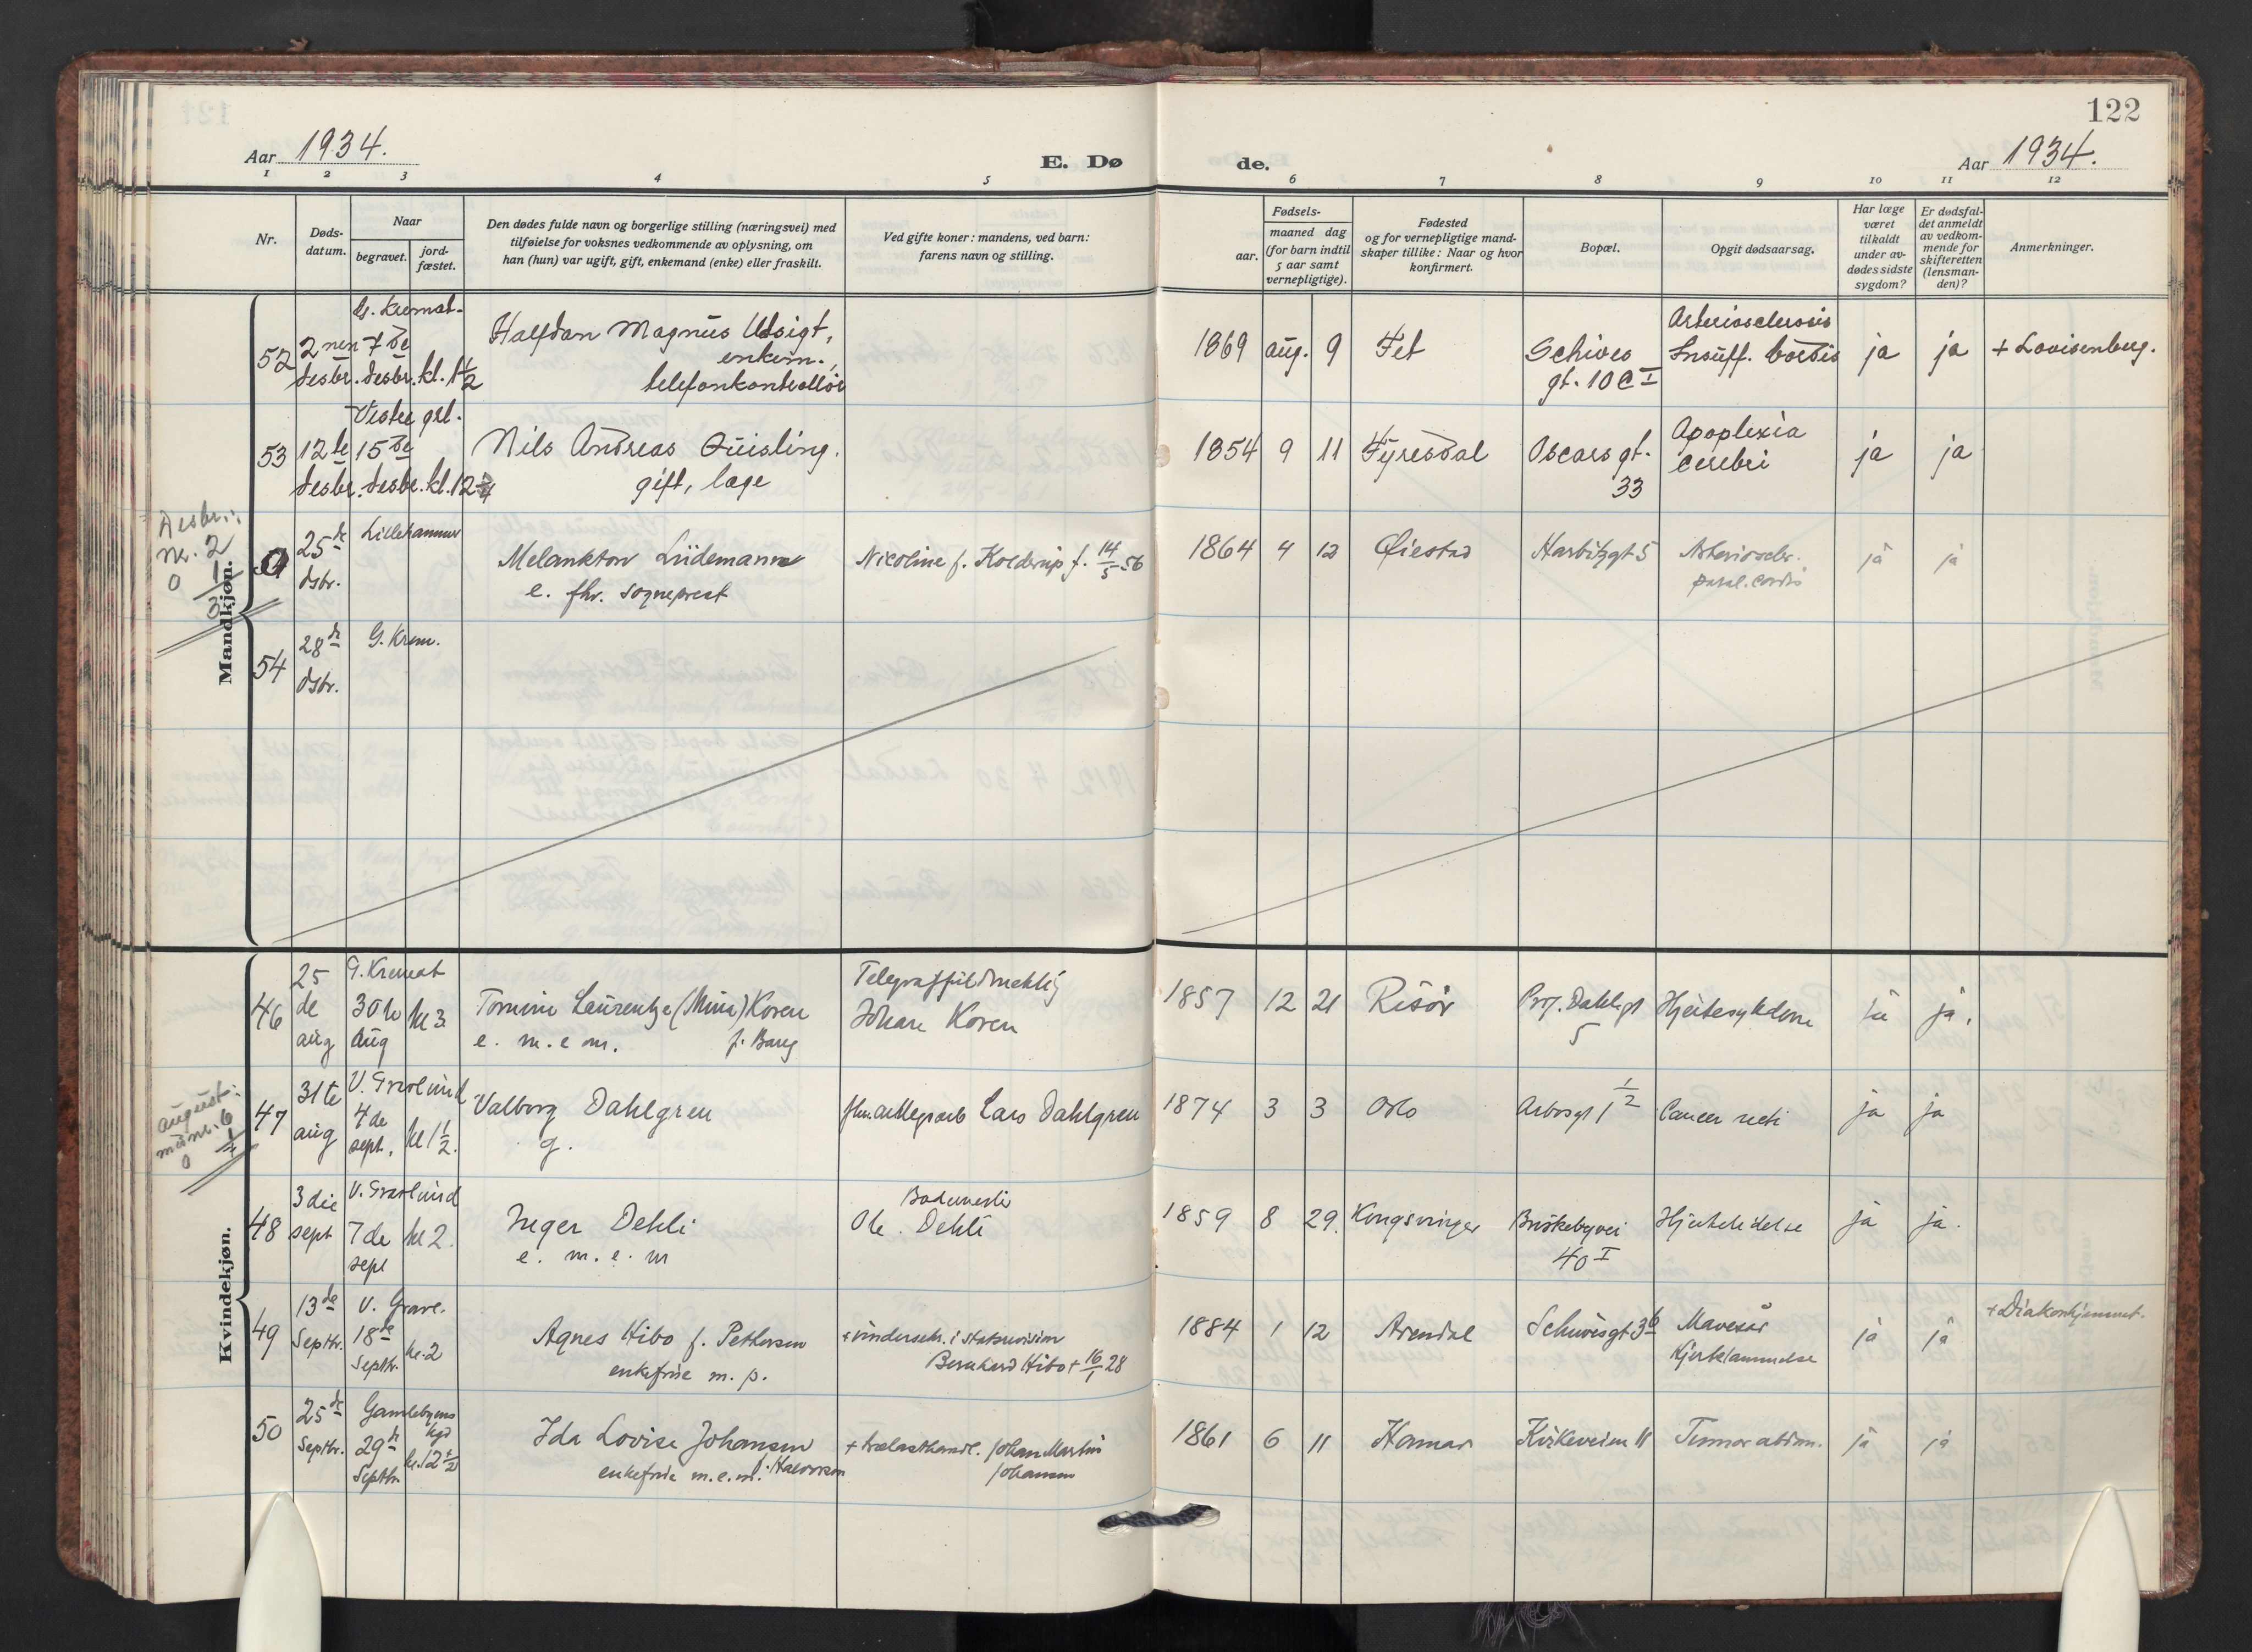 122
Aar 1934.
E. Dø
de.
Aar 1934.
1 2 3 4 5 6 7 8 9 10 11 12
Nr.
Døds-
datum.
Naar
begravet.
jord-
fæstet.
Den dødes fulde navn og borgerlige stilling (næringsvei) med
tilføielse for voksnes vedkommende av oplysning, om
han (hun) var ugift, gift, enkemand (enke) eller fraskilt.
Ved gifte koner: mandens, ved barn:
farens navn og stilling.
Fødsels-
aar.
maaned dag
(for barn indtil
5 aar samt
vernepligtige).
Fødested
og for vernepligtige mand-
skaper tillike: Naar og hvor
konfirmert.
Bopæl.
Opgit dødsaarsag.
Har læge
været
tilkaldt
under av-
dødes sidste
sygdom?
Er dødsfal-
det anmeldt
av vedkom-
mende for
skifteretten
(lensman-
den)?
Anmerkninger.
Mandkjøn.
52
2nen
desbr.
Kremat.
7de
desbr. kl. 1 1/2
Halfdan Magnus Udsigt,
enkem.,
telefonkontrollør
1869 aug. 9 Fet
Schives
gt. 10 C I
Arteriosclerosis
Insuff. cordis
ja ja + Lovisenberg.
53
12te
desbr.
Vestre grl.
15de
desbr. kl. 12
Nils Andreas Quisling.
gift, læge
1854 9 11 Fyresdal
Oscars gt.
33
Apoplexia
cerebri
ja ja
Desbr.:
m. 2
0 1
3
25de
dsbr.
Lillehammer
Melankton Lüdemann
e. fhv. sogneprest
Nicoline f. Kolderup f. 14/5 56
1864 4 12 Øiestad Harbitzgt 5
Arterioscler.
paral. cordis
ja ja
54
28de
dsbr.
G. Krem.
Kvindekjøn.
46
25
de
aug
G. Kremat
30te
aug
kl 3
Tomine Laurentze (Mina) Koren
e. m. e m. f. Bang
Johan Koren
1857 12 21 Risør
Prof. Dahls gt
5
Hjertesykdom
ja ja.
august:
0
47
31te
aug
V. Gravlund
4de
sept. kl 1 1/2.
Valborg Dahlgren
g.
Lars Dahlgren
1874 3 3 Oslo
Arbosgt 1 1/2
Cancer recti
ja ja
48
3die
sept
V. Gravlund
7de
sept
kl 2.
Inger Dehli
e. m. e. m
Bademester
Ole Dehli
1859 8 29. Kongsvinger
Briskebyvei
40 I
Hjertelidelse
ja ja.
49
13de
Septbr.
V. Grave.
18de
Septbr.
kl. 2
Agnes Hibo f. Pettersen
enkefrue m. p.
+ undersekr. i statsrevision
Bernhard Hibo + 16/1 28
1884 1 12 Arendal Schivesgt 3 b
Mavesår
Hjertelammelse
ja ja
+ Diakonhjemmet.
50
25de
Septbr.
Gamlebyens
kgd
29de
Septbr.
kl. 12 1/2
Ida Lovise Johansen
enkefrue m. e. m. f. Halvorsen
+ trælasthandl. Johan Martin
Johansen
1861 6 11 Hamar Kirkeveien 11 Tumor abdom. ja ja